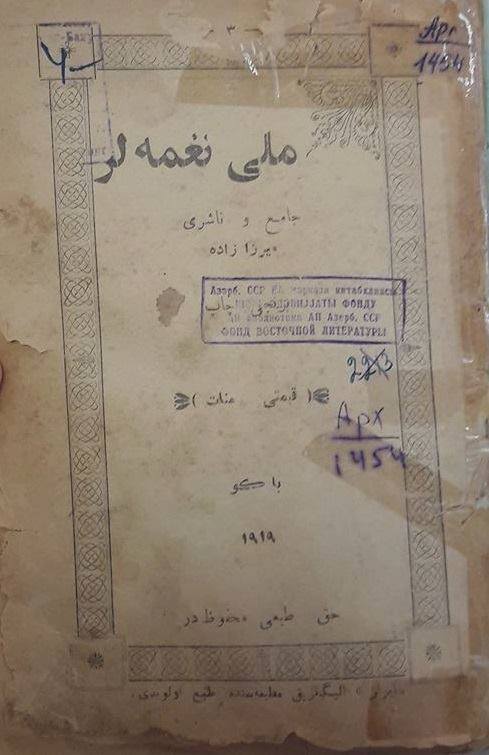 ٣
Арг
1454
ملی نغمه لر
جامع و ناشری
میرزا زاده
Азәрб. ССР ЕА мәркәзи китабханасы
ӘДӘБИЈЈАТЫ ФОНДУ
библиотека АН Азерб. ССР
ФОНД ВОСТОЧНОЙ ЛИТЕРАТУРЫ
برنجی چاپ
223
( قیمتی منات )
Арх
1454
باكو
١٩١٩
حق طبعی محفوظ در
الیكتریق مطبعه‌سنده طبع اولوندی.